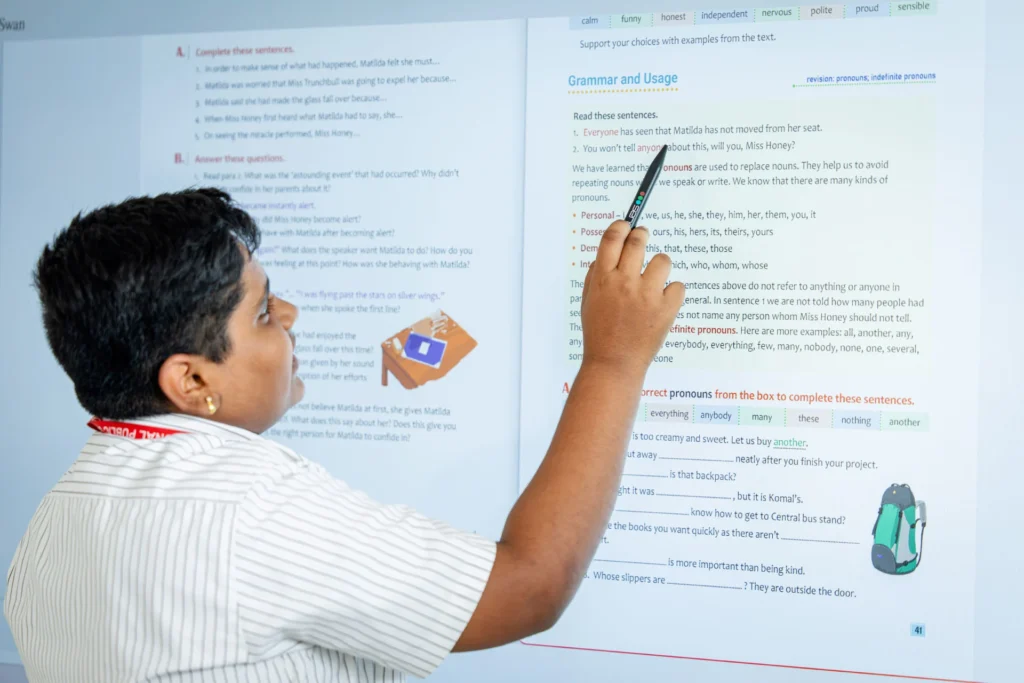 Swan
A. Complete these sentences.
1. In order to make sense of what had happened, Matilda felt she must...
2. Matilda was worried that Miss Trunchbull was going to expel her because...
3. Matilda said she had made the glass fall over because...
4. When Miss Honey first heard what Matilda had to say, she...
5. On seeing the miracle performed, Miss Honey...
B. Answer these questions.
1. Read para 2. What was the 'astounding event' that had occurred? Why didn't
confide in her parents about it?
became instantly alert.
did Miss Honey become alert?
with Matilda after becoming alert?
What does the speaker want Matilda to do? How do you
was feeling at this point? How was she behaving with Matilda?
"I was flying past the stars on silver wings."
when she spoke the first line?
had enjoyed the
glass fall over this time?
given by her sound
of her efforts
not believe Matilda at first, she gives Matilda
it. What does this say about her? Does this give you
the right person for Matilda to confide in?
calm funny honest independent nervous polite proud sensible
Support your choices with examples from the text.
Grammar and Usage
revision: pronouns; indefinite pronouns
Read these sentences.
1. Everyone has seen that Matilda has not moved from her seat.
2. You won't tell anyone about this, will you, Miss Honey?
We have learned that pronouns are used to replace nouns. They help us to avoid
repeating nouns we speak or write. We know that there are many kinds of
pronouns.
• Personal – we, us, he, she, they, him, her, them, you, it
• ours, his, hers, its, theirs, yours
• this, that, these, those
• which, who, whom, whose
sentences above do not refer to anyone or anyone in
general. In sentence 1 we are not told how many people had
not name any person whom Miss Honey should not tell.
indefinite pronouns. Here are more examples: all, another, any,
everybody, everything, few, many, nobody, none, one, several,
A correct pronouns from the box to complete these sentences.
everything anybody many these nothing another
is too creamy and sweet. Let us buy another.
away ____ neatly after you finish your project.
____ is that backpack?
it was ____, but it is Komal's.
____ know how to get to Central bus stand?
the books you want quickly as there aren't ____
____ is more important than being kind.
Whose slippers are ____? They are outside the door.
41